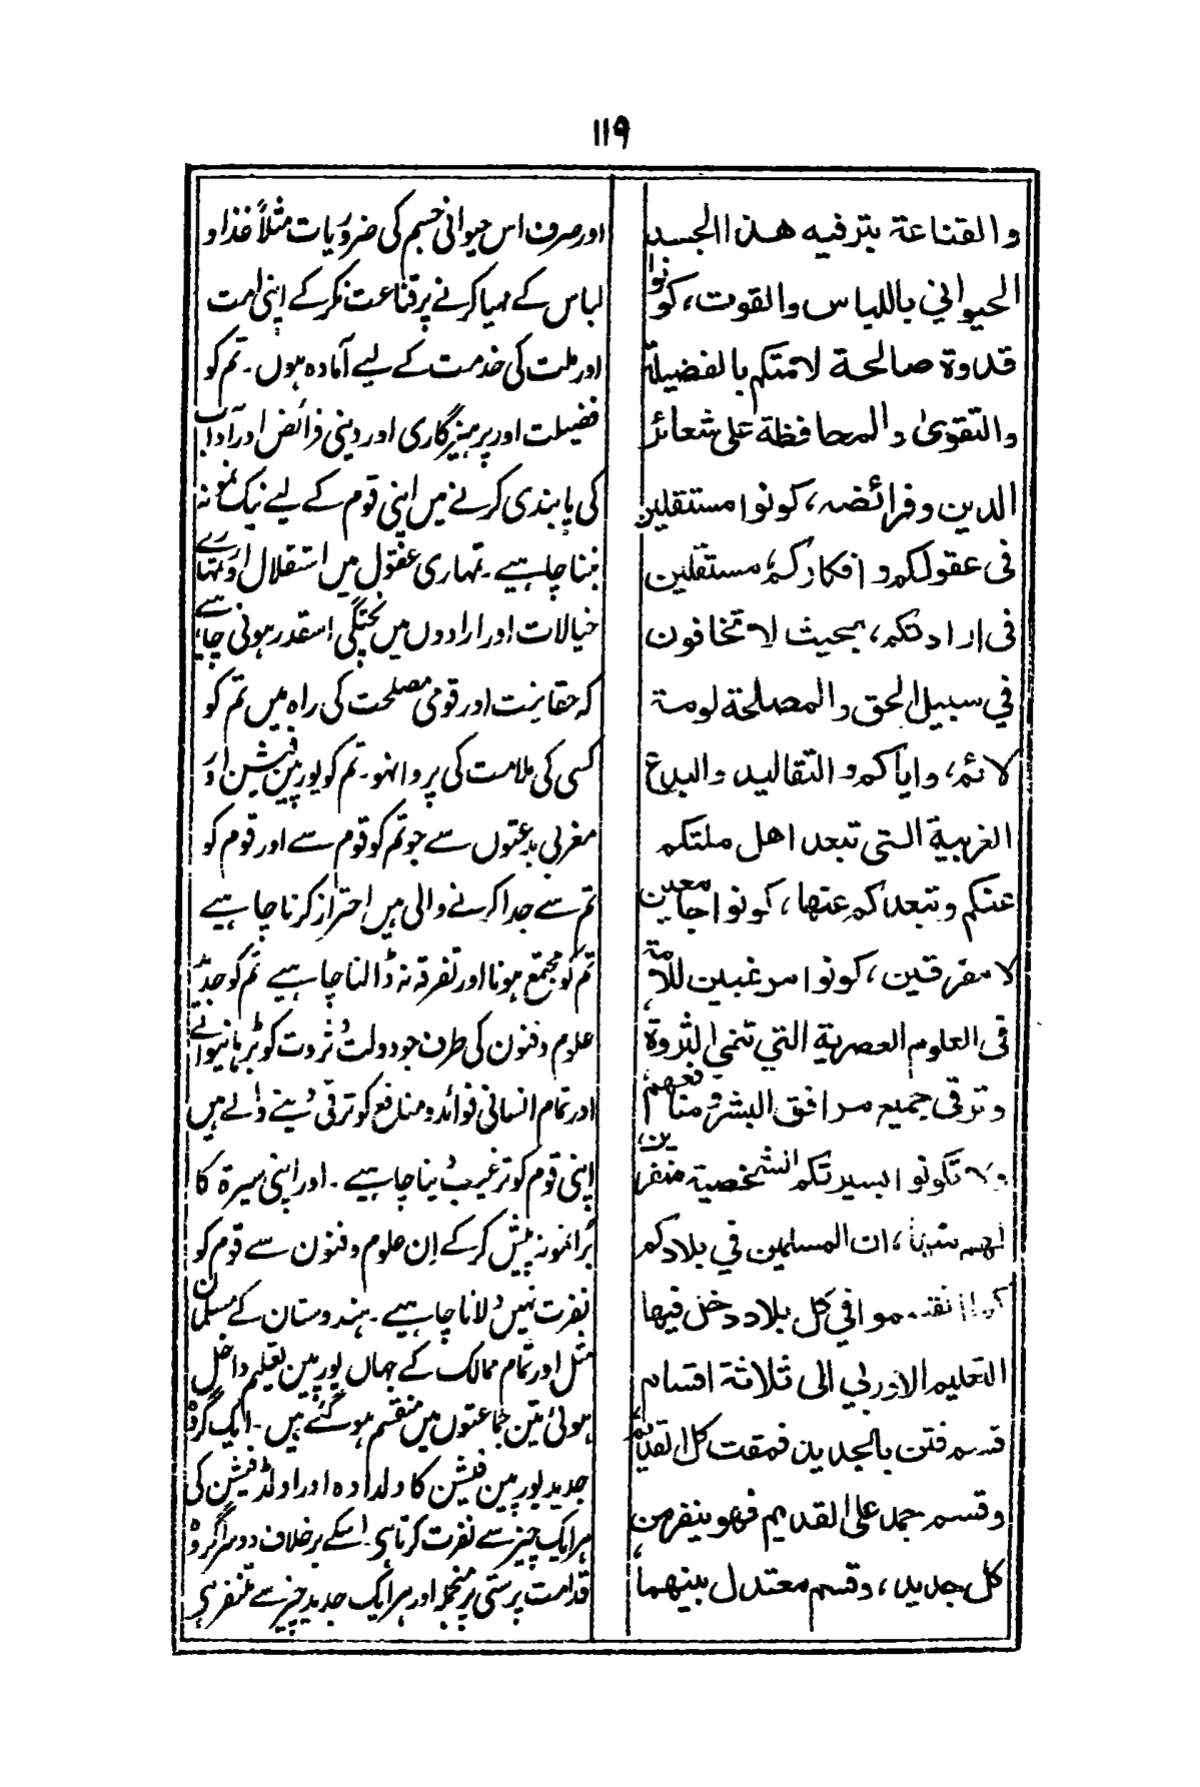 ١١٩
والقناعة بترفيه هذا الجسد
الحيواني باللباس والقوت، كونوا
قدوة صالحة لامتكم بالفضيلة
والتقوىٰ والمحافظة على شعائر
الدين وفرائضه، كونوا مستقلين
فى عقولكم وافكاركم، مستقلين
فى ارادتكم، بحيث لا تخافون
في سبيل الحق والمصلحة لومة
لائم، واياكم والتقاليد والبدع
الغربية التى تبعد اهل ملتكم
عنكم وتبعدكم عنها، كونوا جامعين
لا مفرقين، كونوا مرغبين للامة
فى العلوم العصرية التي تنمي الثروة
وترقى جميع مرافق البشر و منافعهم
ولا تكونوا بسيرتكم الشخصية منفرين
لهم عنها، ان المسلمين في بلادكم
انقسموا في كل بلاد دخل فيها
التعليم الاوربي الى ثلاثة اقسام
قسم فتن بالجديد فمقت كل القديم
وقسم جمد على القديم فهو ينفر من
كل جديد، وقسم معتدل بينهما
اور صرف اس حیوانی جسم کی ضروریات مثلاً غذا و
لباس کے مہیا کرنے پر قناعت نکر کے اپنی امت
اور ملت کی خدمت کے لیے آمادہ ہوں۔ تم کو
فضیلت اور پرہیزگاری اور دینی فرائض اور آداب
کی پابندی کرنے میں اپنی قوم کے لیے نیک نمونہ
بننا چاہیے۔ تمہاری عقول میں استقلال اور تمہارے
خیالات اور ارادوں میں پختگی اسقدر ہونی چاہیے
کہ حقانیت اور قومی مصلحت کی راہ میں تم کو
کسی کی ملامت کی پروا نہو۔ تم کو یورپین فیشن اور
مغربی بدعتوں سے جو تم کو قوم سے اور قوم کو
تم سے جدا کرنے والی ہیں احتراز کرنا چاہیے
تم کو مجتمع ہونا اور تفرقہ نہ ڈالنا چاہیے تم کو جدید
علوم و فنون کی طرف جو دولت و ثروت کو بڑہانیوالے
اور تمام انسانی فوائد و منافع کو ترقی دینے والے ہیں
اپنی قوم کو ترغیب دینا چاہیے۔ اور اپنی سیرة کا
برا نمونہ پیش کر کے اِن علوم و فنون سے قوم کو
نفرت نہیں دلانا چاہیے۔ ہندوستان کے مسلمان
مثل اور تمام ممالک کے جہاں یورپین تعلیم داخل
ہوئی تین جماعتوں میں منقسم ہو گئے ہیں۔ ایک گروہ
جدید یورپین فیشن کا دلدادہ اور اولڈ فیشن کی
ہر ایک چیز سے نفرت کرتا ہی۔ اسکے برخلاف دوسرا گروہ
قدامت پرستی پر منجمد اور ہر ایک جدید چیز سے متنفر ہی